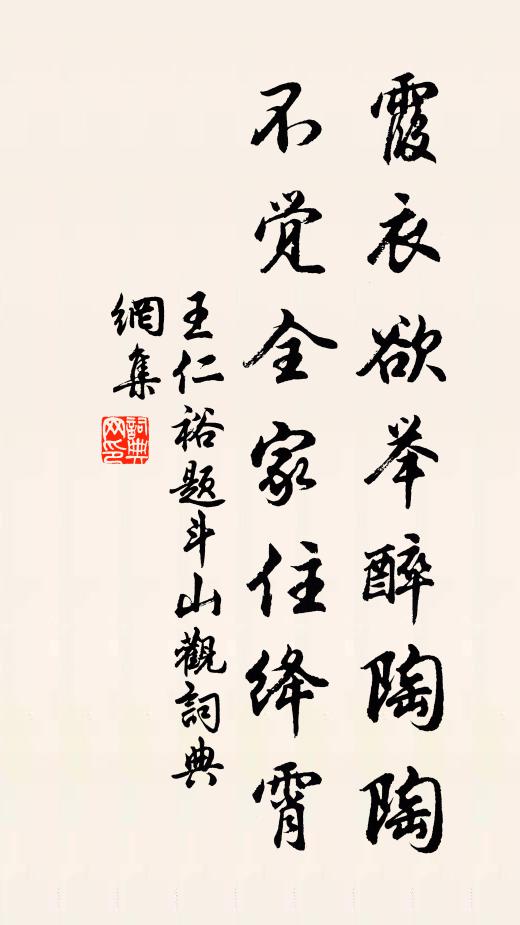 霞衣欲举醉陶陶
不觉全家住绛霄
王仁裕题斗山觀詞典
網集
詞典网印